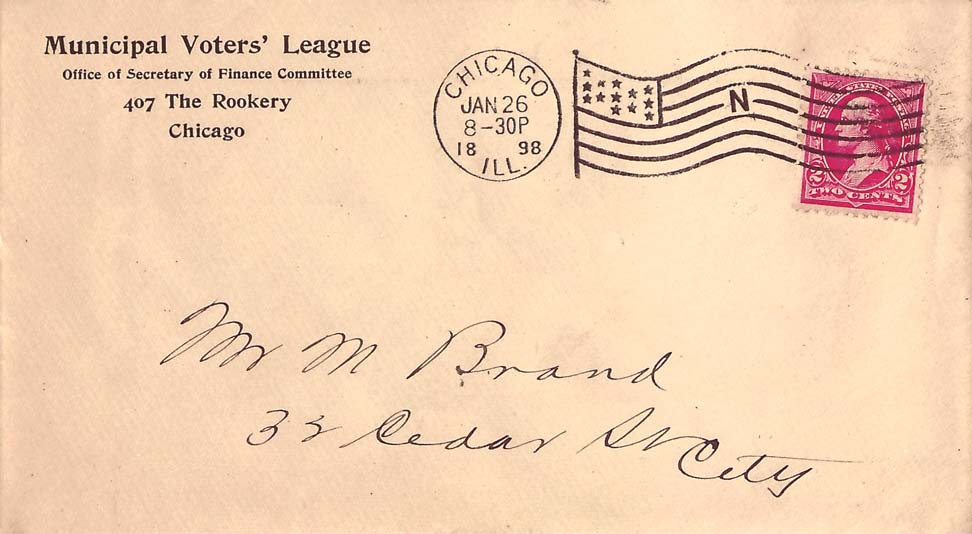 Municipal Voters' League
Office of Secretary of Finance Committee
407 The Rookery
Chicago
CHICAGO
JAN 26
8-30P
18 98
ILL.
N
2 2
TWO CENTS
Mr M Brand
32 Cedar St
City